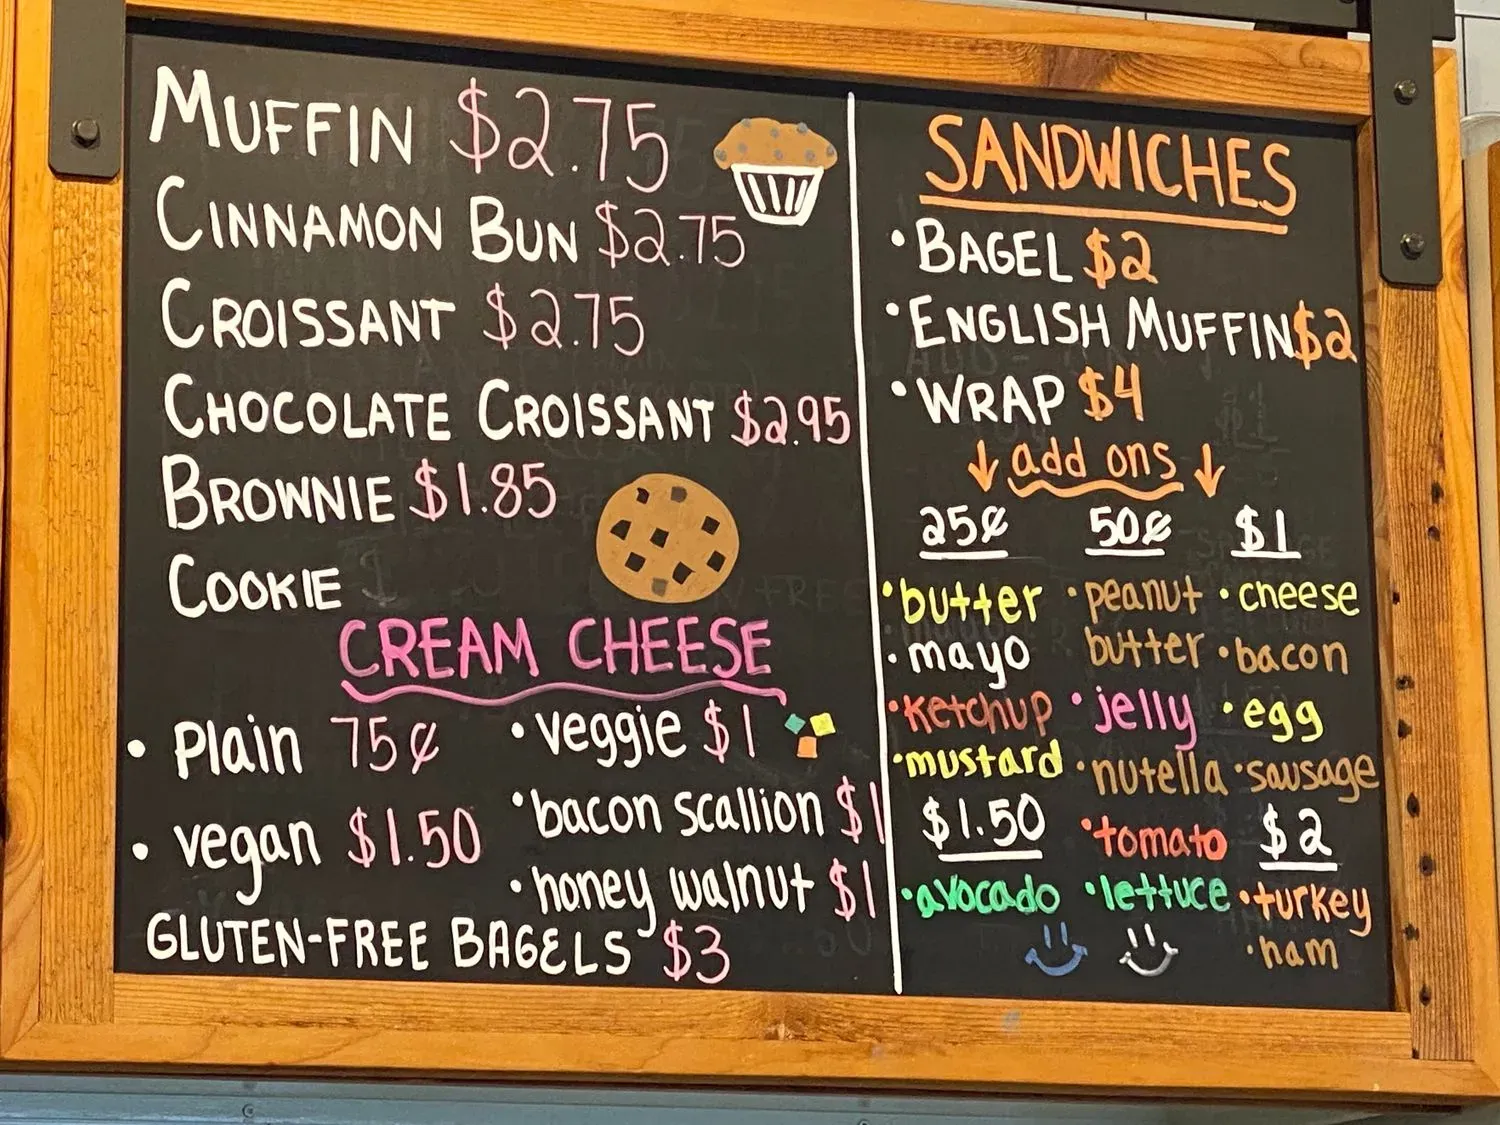 MUFFIN $2.75
CINNAMON BUN $2.75
CROISSANT $2.75
CHOCOLATE CROISSANT $2.95
BROWNIE $1.85
COOKIE
CREAM CHEESE
• Plain 75¢
• veggie $1
• bacon scallion $1
• vegan $1.50
• honey walnut $1
GLUTEN-FREE BAGELS $3
SANDWICHES
• BAGEL $2
• ENGLISH MUFFIN $2
• WRAP $4
↓ add ons ↓
25¢
• butter
• mayo
• Ketchup
• mustard
$1.50
• avocado
50¢
• peanut
butter
• jelly
• nutella
• tomato
• lettuce
$1
• cheese
• bacon
• egg
• sausage
$2
• turkey
• ham